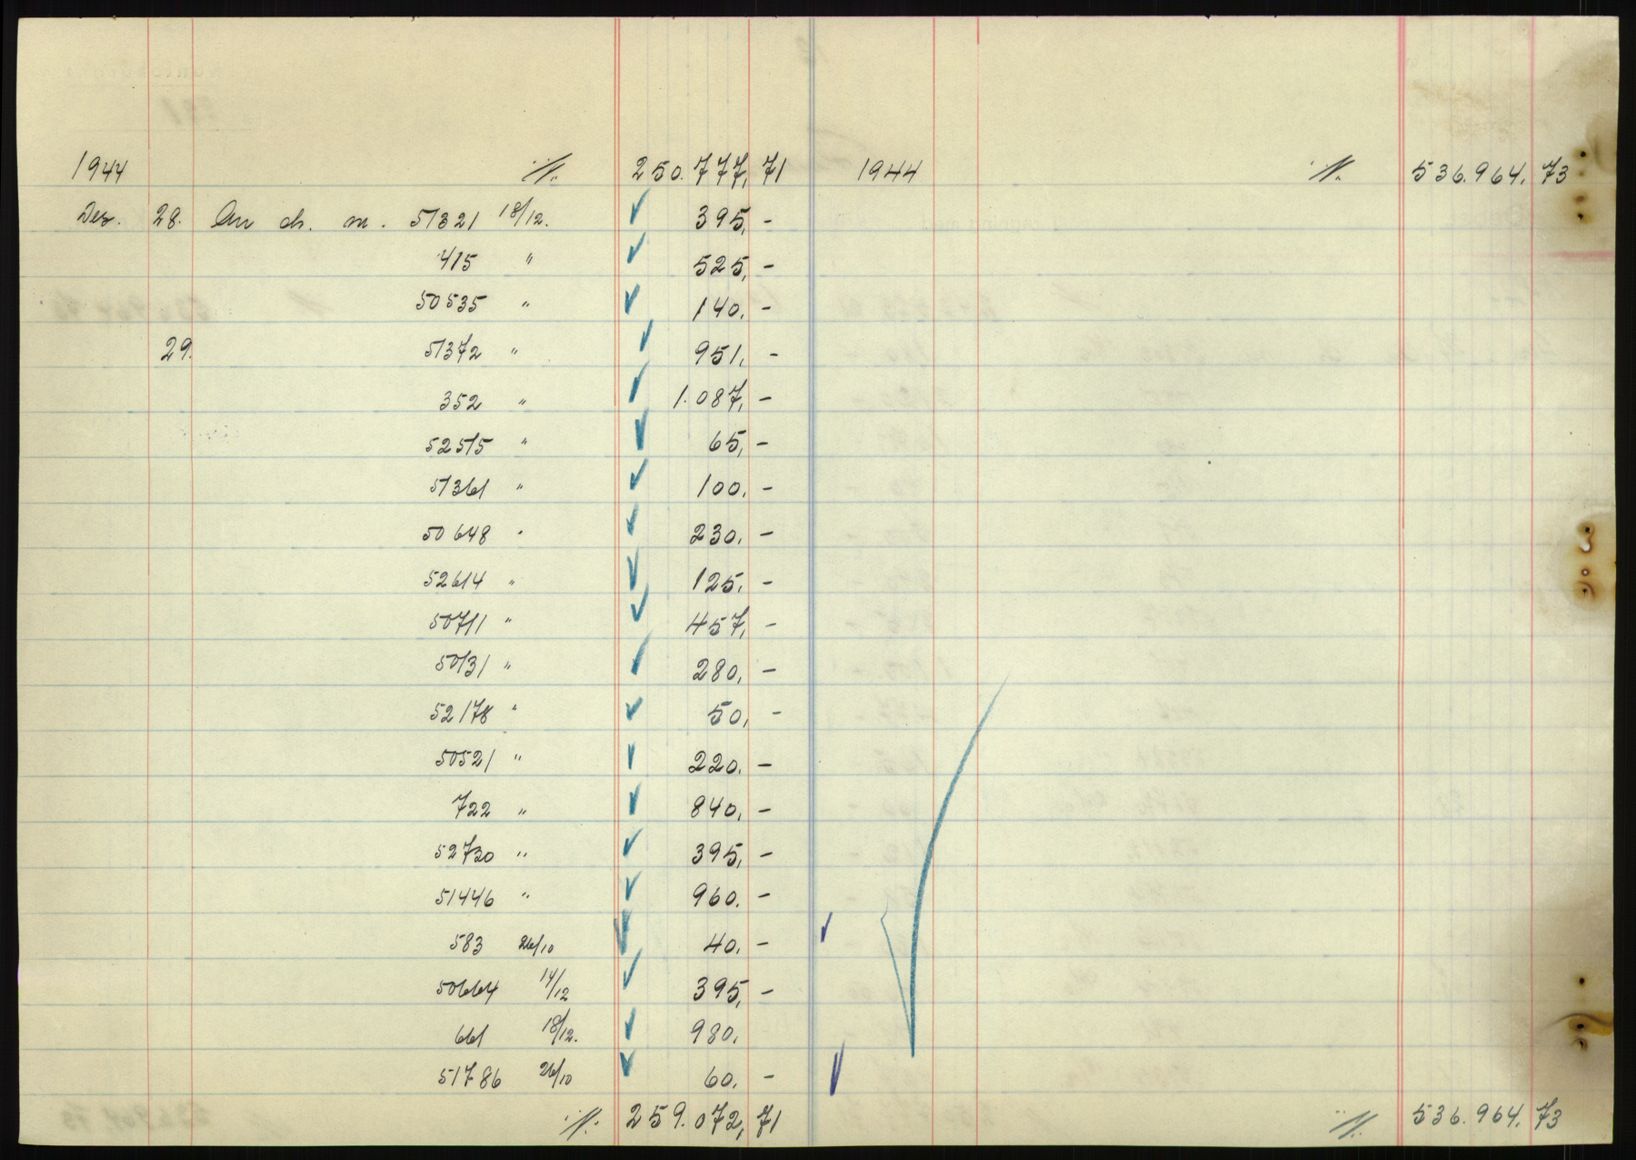 1944 ·/· 250.777,71 1944 ·/· 536.964.73
Dez. 28. An ch. m. 51321 18/12. 395,-
415 " 525,-
50535 " 140.-
29. 51372 " 951.-
352 " 1.087,-
52515 " 65,-
51361 " 100.-
50648 " 230.-
52614 " 125.-
50711 " 457,-
50131 " 280.-
52178 " 50,-
50521 " 220.-
722 " 840.-
52730 " 395,-
51446 " 960.-
583 26/10 40.-
50664 14/12 395,-
661 18/12. 980.
51786 26/10 60.-
·/· 259.072,71 ·/· 536.964.73